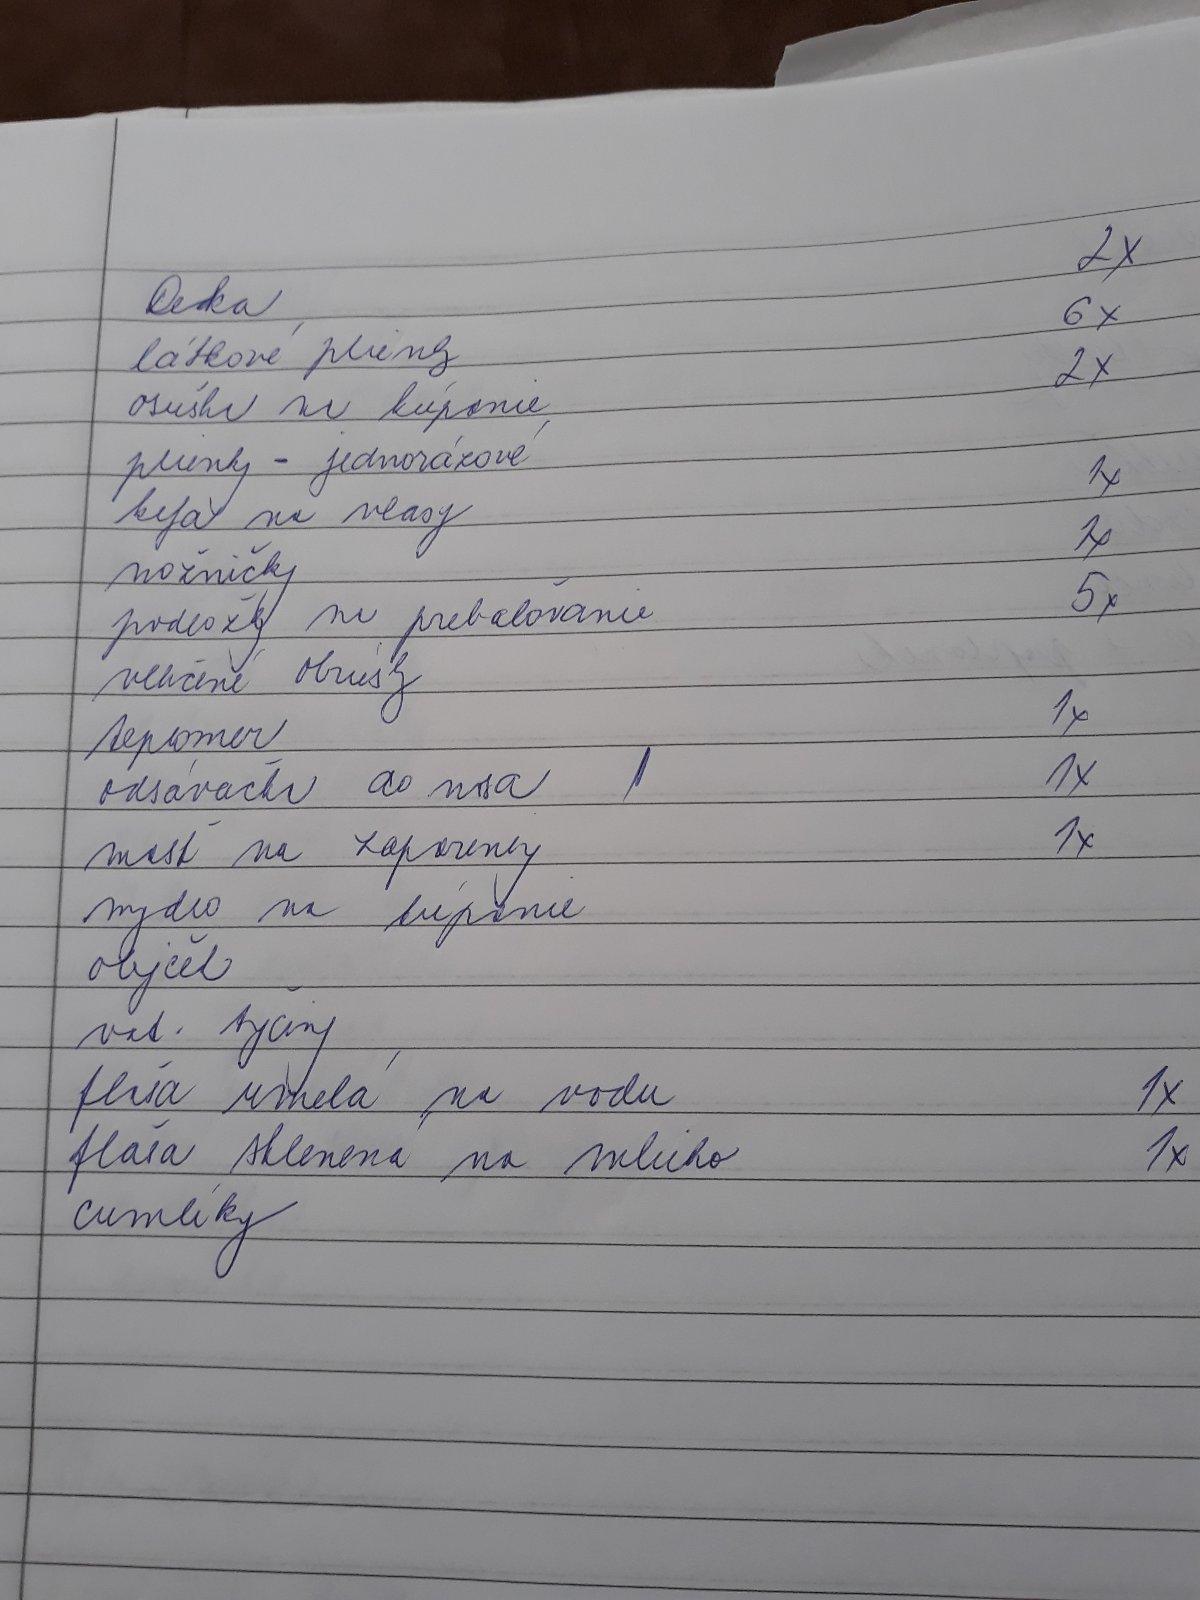 Deka 2x
látkové plienky 6x
osuška na kúpanie 2x
plienky - jednorázové
kefa na vlasy 1x
nožničky 1x
podložky na prebaľovanie 5x
vlhčené obrúsky
teplomer 1x
odsávačka do nosa 1x
masť na zapareniny 1x
mydlo na kúpanie
olejček
vat. tyčiny
fľaša umelá na vodu 1x
fľaša sklenená na mlieko 1x
cumlíky